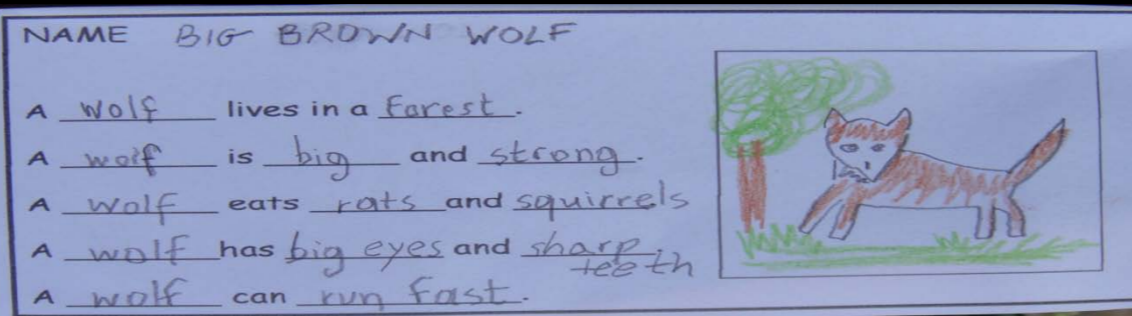 NAME BIG BROWN WOLF
A wolf lives in a farest.
A wolf is big and strong.
A wolf eats rats and squirrels
A wolf has big eyes and sharp.
teeth
A wolf can run fast.